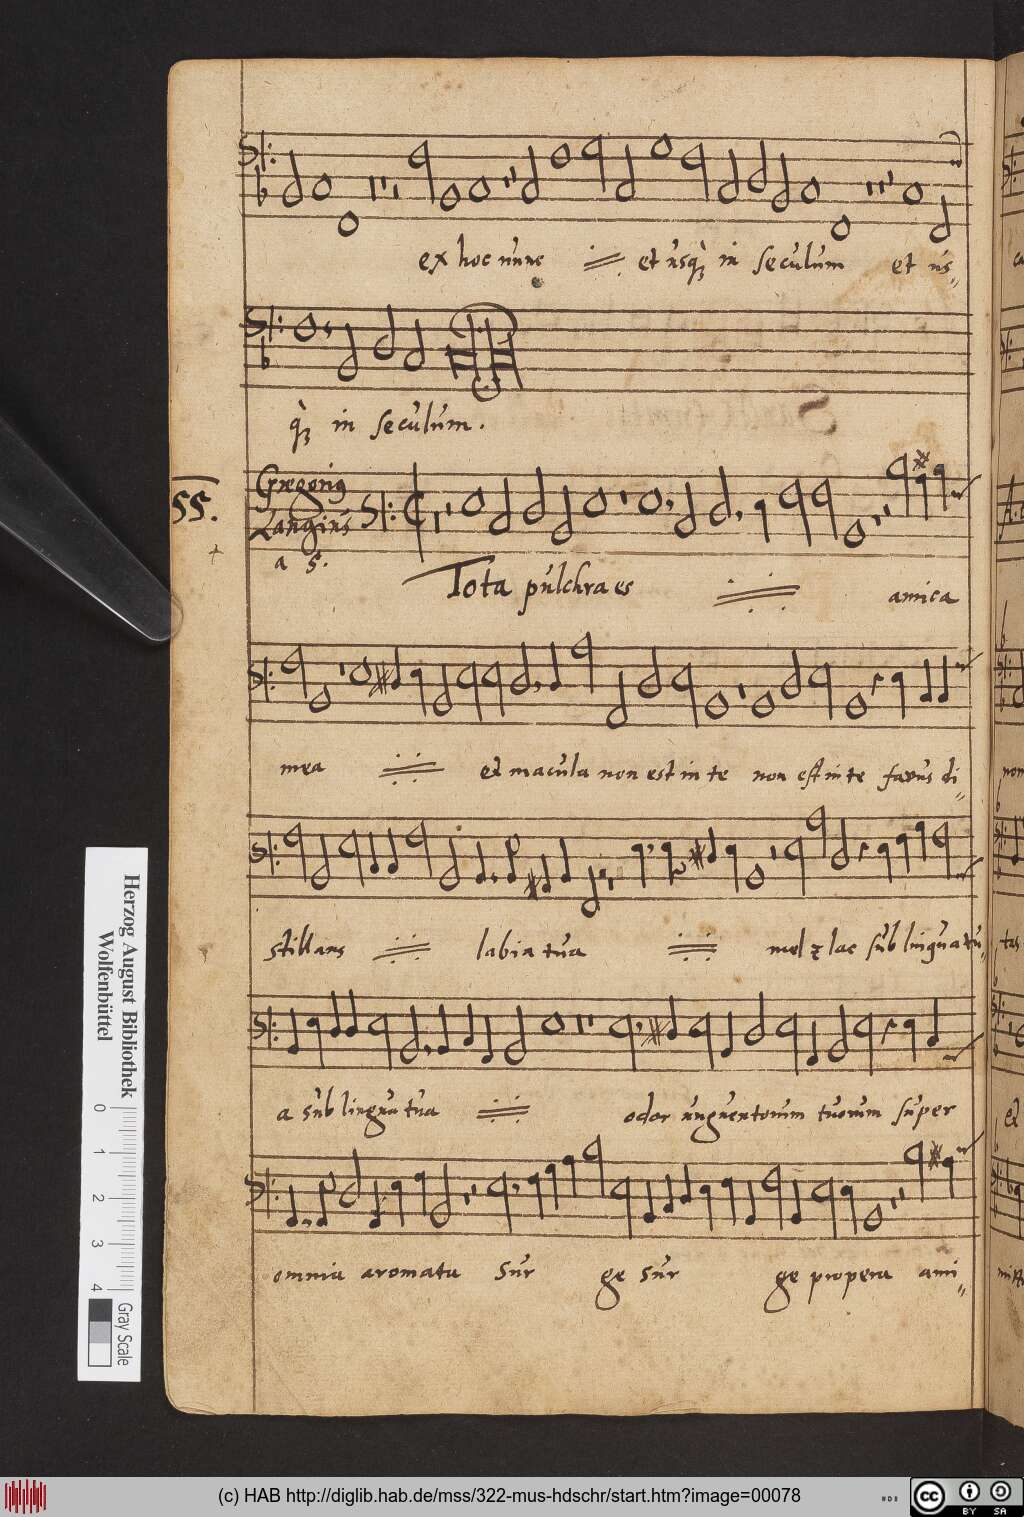 ex hoc nunc et usq; in seculum et us=
q; in seculum.
55.
Gregorius
Langius
a 5.
Tota pulchra es amica
mea et macula non est in te non est in te favus di=
stillans labia tua mel & lac sub lingua tu=
a sub lingua tua odor unguentorum tuorum super
omnia aromata Sur ge sur ge propera ami=
Herzog August Bibliothek
Wolfenbüttel
0 1 2 3 4
Gray Scale
(c) HAB http://diglib.hab.de/mss/322-mus-hdschr/start.htm?image=00078
cc BY SA